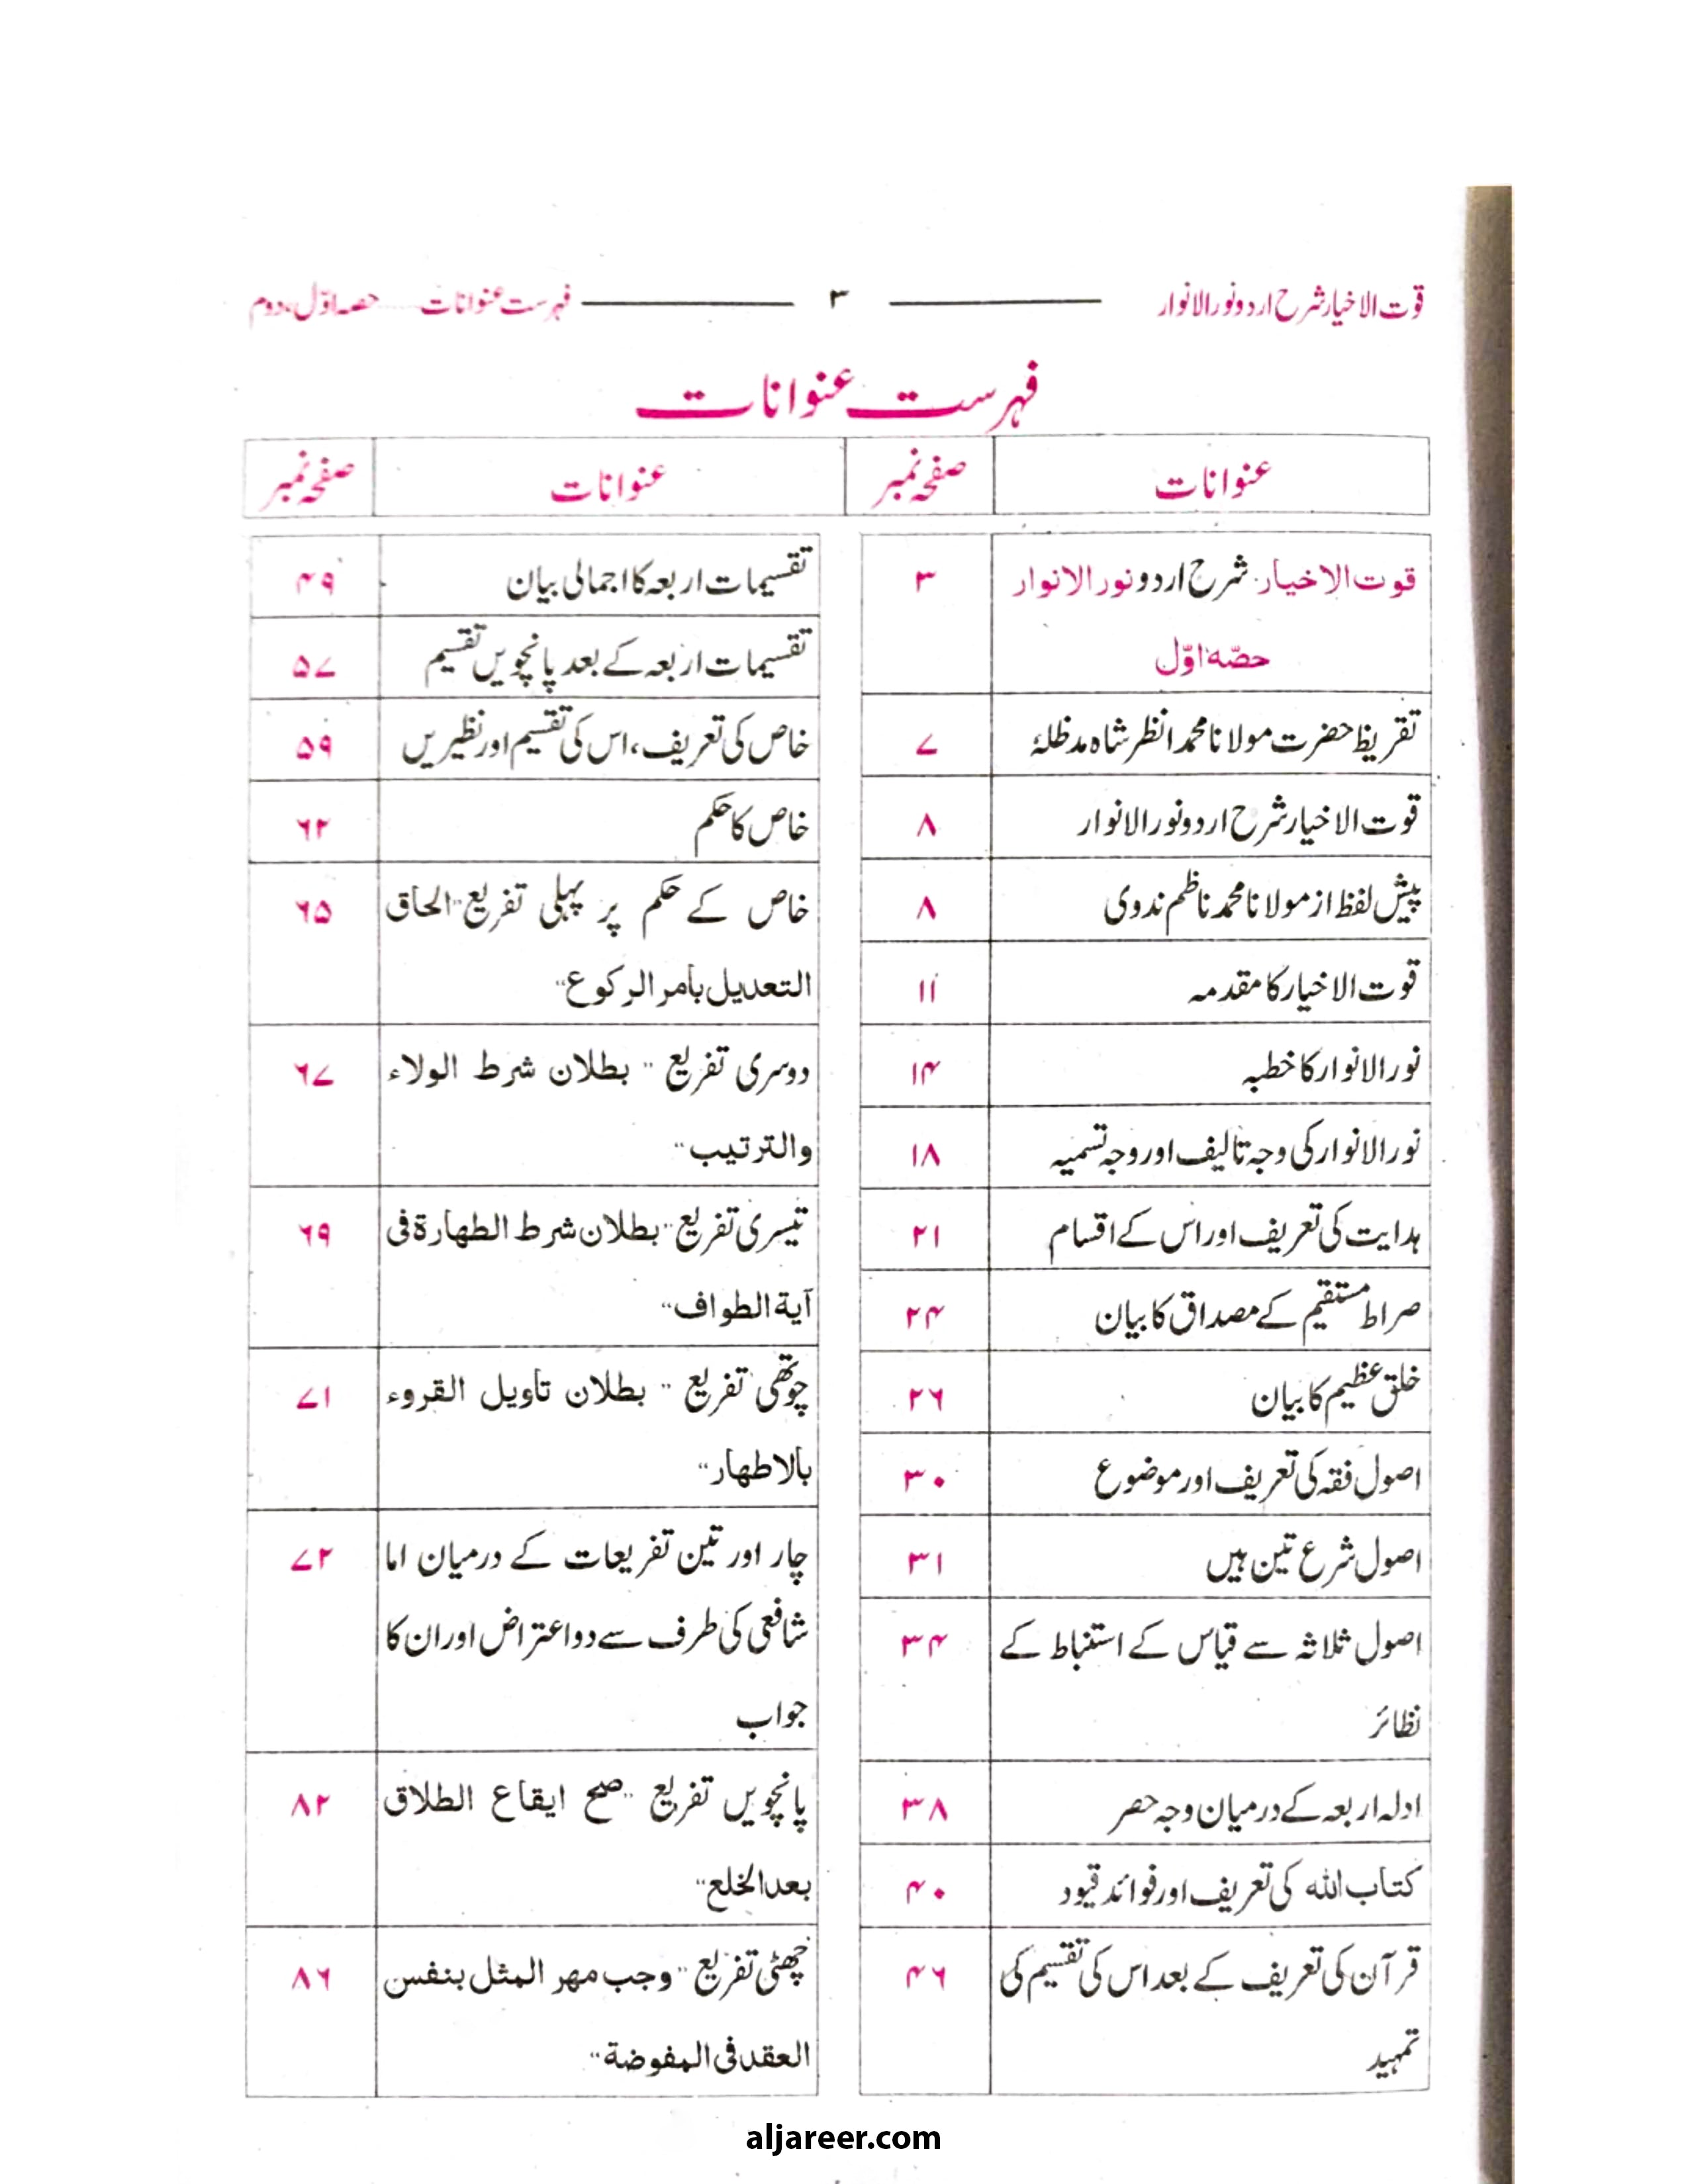 قوت الاخیار شرح اردو نور الانوار ۳ فہرست عنوانات ...... حصہ اوّل، دوم
فہرست عنوانات
عنوانات صفحہ نمبر عنوانات صفحہ نمبر
قوت الاخیار شرح اردو نور الانوار ۳
حصّہ اوّل
تقریظ حضرت مولانا محمد انظر شاہ مدظلہٗ ۷
قوت الاخیار شرح اردو نور الانوار ۸
پیش لفظ از مولانا محمد ناظم ندوی ۸
قوت الاخیار کا مقدمہ ۱۱
نور الانوار کا خطبہ ۱۴
نور الانوار کی وجہ تالیف اور وجہ تسمیہ ۱۸
ہدایت کی تعریف اور اس کے اقسام ۲۱
صراط مستقیم کے مصداق کا بیان ۲۴
خلق عظیم کا بیان ۲۶
اصول فقہ کی تعریف اور موضوع ۳۰
اصول شرع تین ہیں ۳۱
اصول ثلاثہ سے قیاس کے استنباط کے ۳۴
نظائر
ادلہ اربعہ کے درمیان وجہ حصر ۳۸
کتاب اللہ کی تعریف اور فوائد قیود ۴۰
قرآن کی تعریف کے بعد اس کی تقسیم کی ۴۶
تمہید
تقسیمات اربعہ کا اجمالی بیان ۴۹
تقسیمات اربعہ کے بعد پانچویں تقسیم ۵۷
خاص کی تعریف، اس کی تقسیم اور نظیریں ۵۹
خاص کا حکم ۶۲
خاص کے حکم پر پہلی تفریع "الحاق ۶۵
التعدیل بأمر الرکوع"
دوسری تفریع "بطلان شرط الولاء ۶۷
والترتیب"
تیسری تفریع "بطلان شرط الطهارة فی ۶۹
آیة الطواف"
چوتھی تفریع "بطلان تاویل القروء ۷۱
بالاطهار"
چار اور تین تفریعات کے درمیان اما ۷۲
شافعی کی طرف سے دو اعتراض اور ان کا
جواب
پانچویں تفریع "صح ایقاع الطلاق ۸۲
بعد الخلع"
چھٹی تفریع "وجب مهر المثل بنفس ۸۶
العقد فی المفوضة"
aljareer.com